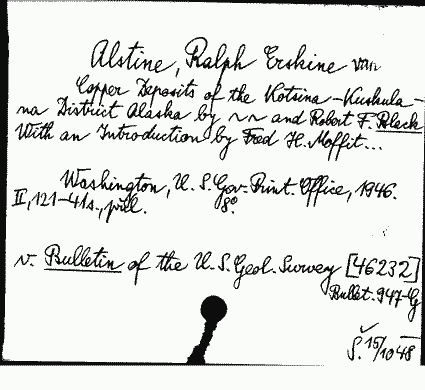 Alstine, Ralph Erskine van
Copper Deposits of the Kotsina-Kuskula-
na District Alaska by ~~ and Robert F. Black
With an Introduction by Fred H. Moffit...
Washington, U. S. Gov. Print. Office, 1946.
II, 121-41 s., pill. 8°.
v. Bulletin of the U. S. Geol. Survey [46232]
Bullet. 947-G
S. 15/10 48